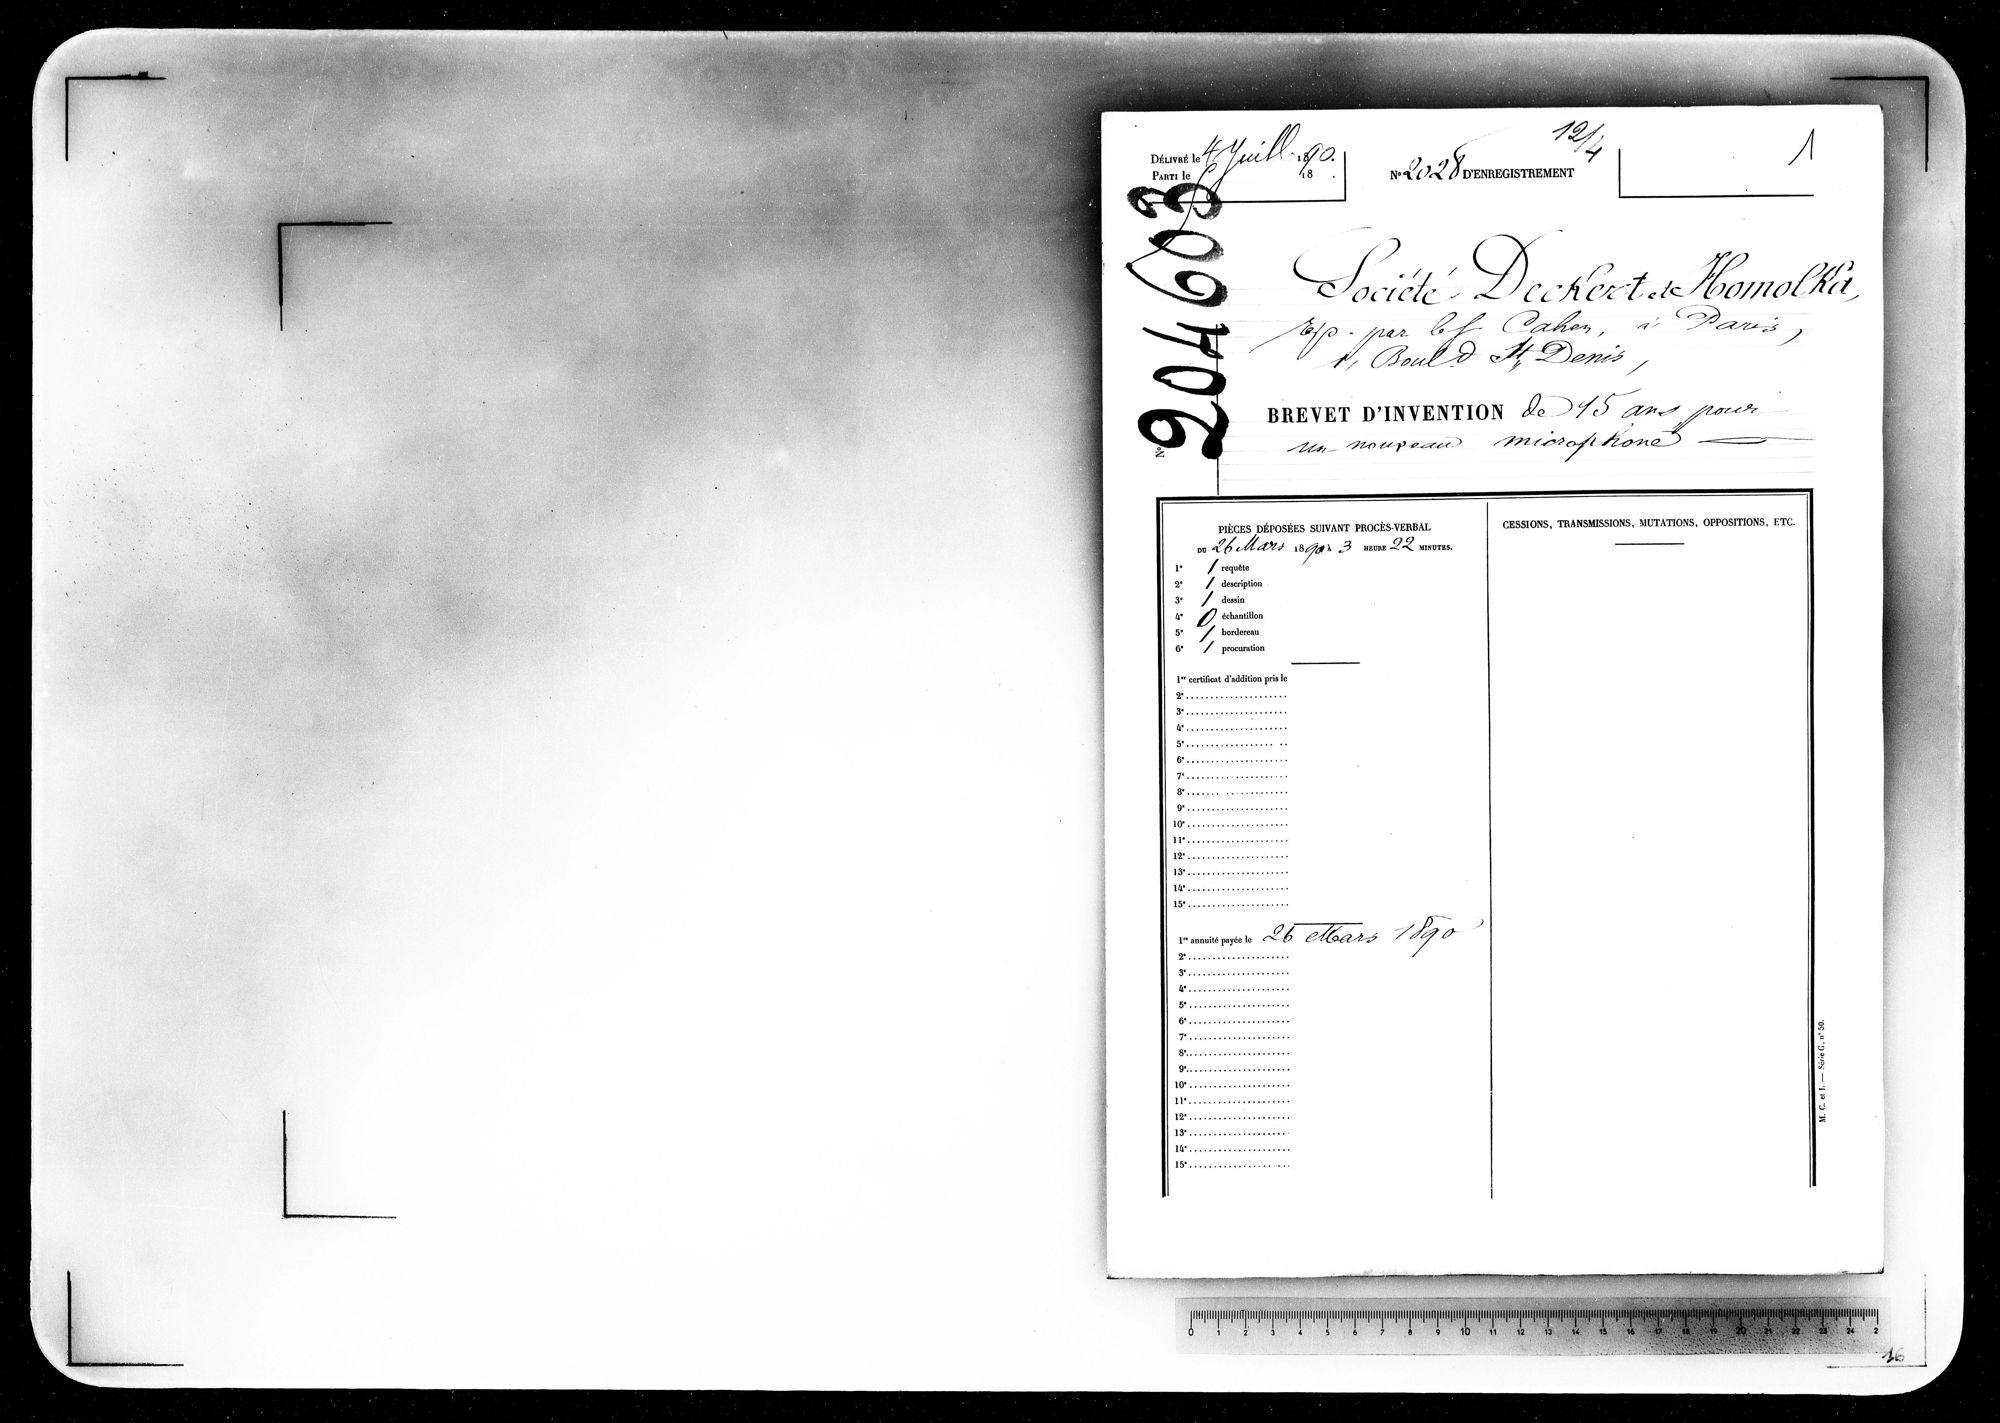 DÉLIVRÉ le 4 Juill. 1890.
PARTI le 18 .
N° 2028 D'ENREGISTREMENT
12/4
1
N° 204603
Société Deckert et Homolka,
rep. par le sr Cahen, à Paris,
1, Boul.d St Denis,
BREVET D'INVENTION de 15 ans pour
un nouveau microphone
PIÈCES DÉPOSÉES SUIVANT PROCÈS-VERBAL
DU 26 Mars 1890 À 3 HEURE 22 MINUTES.
1° 1 requête
2° 1 description
3° 1 dessin
4° 0 échantillon
5° 1 bordereau
6° 1 procuration
1er certificat d'addition pris le
2e
3e
4e
5e
6e
7e
8e
9e
10e
11e
12e
13e
14e
15e
1re annuité payée le 26 Mars 1890
2e
3e
4e
5e
6e
7e
8e
9e
10e
11e
12e
13e
14e
15e
CESSIONS, TRANSMISSIONS, MUTATIONS, OPPOSITIONS, ETC.
M. C. et I. — Série G, n° 50.
0 1 2 3 4 5 6 7 8 9 10 11 12 13 14 15 16 17 18 19 20 21 22 23 24 2
16